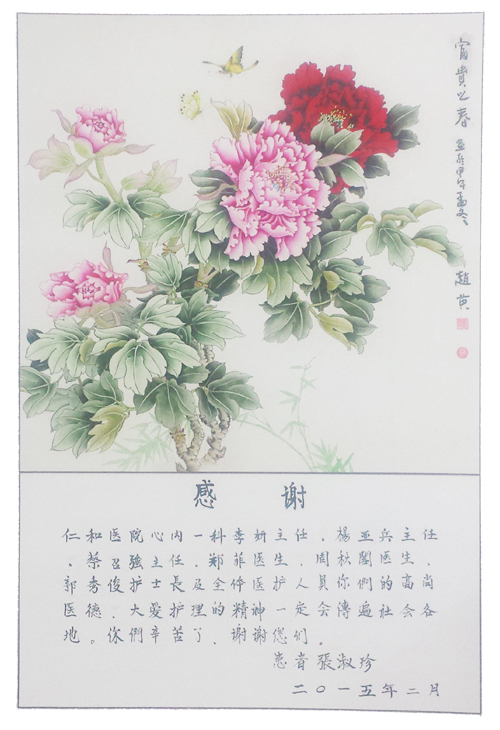 富貴之春
甲午孟冬
趙
感謝
仁和医院心内一科李妍主任、楊亚兵主任
、蔡召強主任、郑菲医生、周秋閣医生、
郭秀俊护士長及全体医护人員你們的高尚
医德、大爱护理的精神一定会傳遍社会各
地。你們辛苦了、谢谢您们。
患者張淑珍
二〇一五年二月